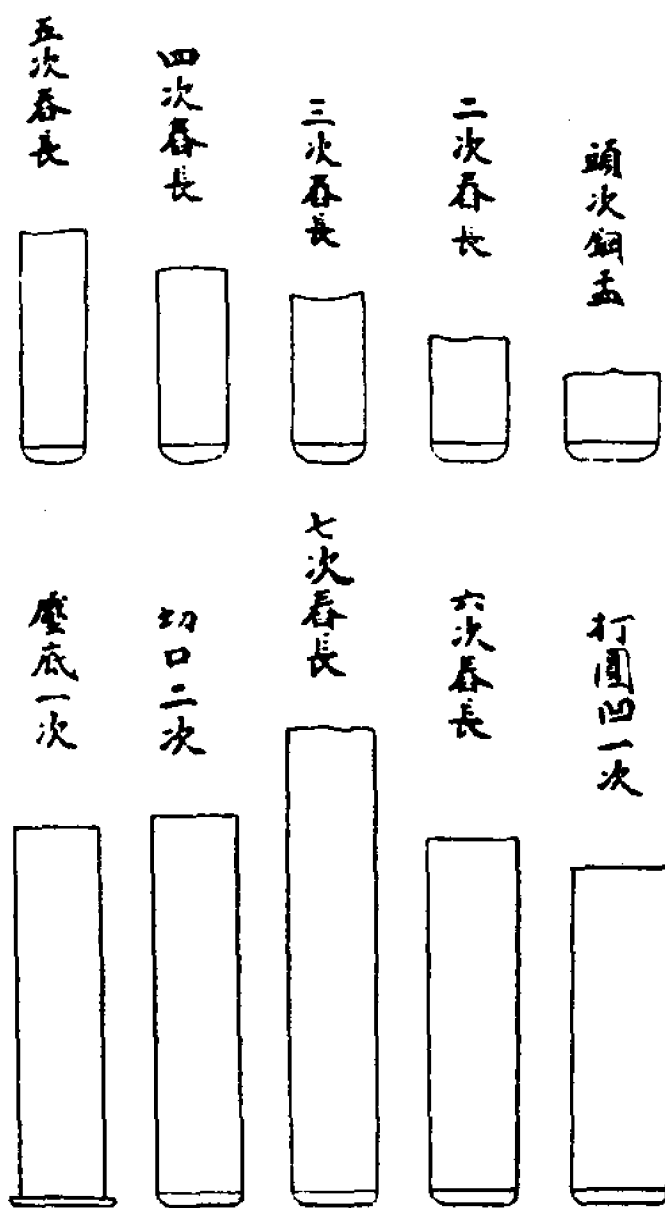 頭次銅盂
二次舂長
三次舂長
四次舂長
五次舂長
打圓凹一次
六次舂長
七次舂長
切口二次
壓底一次